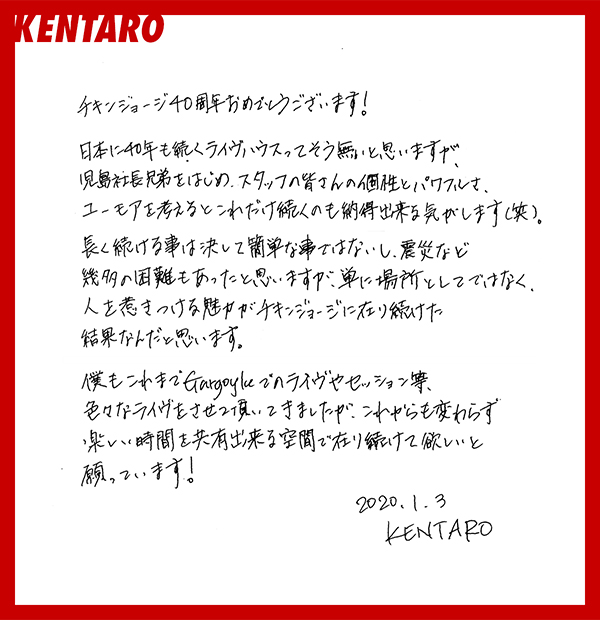 KENTARO
チキンジョージ40周年おめでとうございます!
日本に40年も続くライヴハウスってそう無いと思いますが、
児島社長兄弟をはじめ、スタッフの皆さんの個性とパワフルさ、
ユーモアを考えるとこれだけ続くのも納得出来る気がします(笑)。
長く続ける事は決して簡単な事ではないし、震災など
幾多の困難もあったと思いますが、単に場所としてではなく、
人を惹きつける魅力がチキンジョージに在り続けた
結果なんだと思います。
僕もこれまでGargoyleでのライヴやセッション等、
色々なライヴをさせて頂いてきましたが、これからも変わらず
楽しい時間を共有出来る空間で在り続けて欲しいと
願っています!
2020.1.3
KENTARO